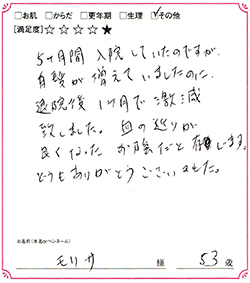 □お肌 □からだ □更年期 □生理 ☑その他
[満足度]☆☆☆☆★
5ヶ月間入院していたのですが、
白髪が増えていましたのに、
退院後1ヶ月で激減
致しました。血の巡りが
良くなったお陰だと存じます。
どうもありがとうございました。
お名前(本名orペンネーム)
モリサ 様 53歳